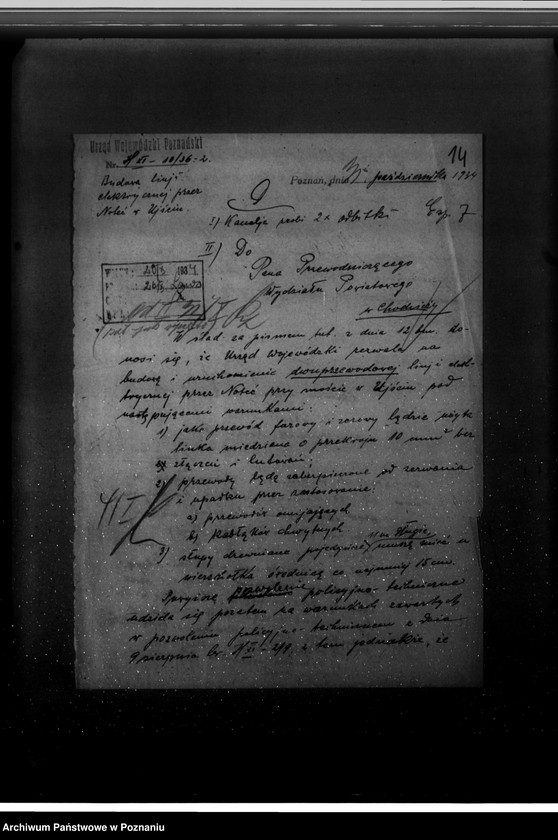 Urząd Wojewódzki Poznański
Nr. 10/36-2.
14
Budowa linji
elektrycznej przez
Noteć w Ujściu.
Poznań, dnia października 1934
I) Kancelja zrobi 2 x odbitki
II) Do
Pana Przewodniczącego
Wydziału Powiatowego
w Chodzieży
W ślad za pismem tut. z dnia 12 bm. do-
nosi się, że Urząd Wojewódzki zezwala na
budowę i uruchomienie dwuprzewodowej linji elek-
trycznej przez Noteć przy moście w Ujściu pod
następującemi warunkami:
1) jako przewód fazowy i zerowy będzie użyta
linka miedziana o przekroju 10 mm² bez
złączeń i lutowań;
2) przewody będą zabezpieczone od zerwania
i upadku przez zastosowanie:
a) przewodów
b) kabłąków chwytnych
3) słupy drewniane pojedyńcze muszą mieć w
wierzchołku średnicę co najmniej 15 cm.
pozwolenie policyjno-techniczne
udziela się pozatem na warunkach zawartych
w pozwoleniu policyjno-technicznem z dnia
9 sierpnia br. z tem jednakże, że
Archiwum Państwowe w Poznaniu